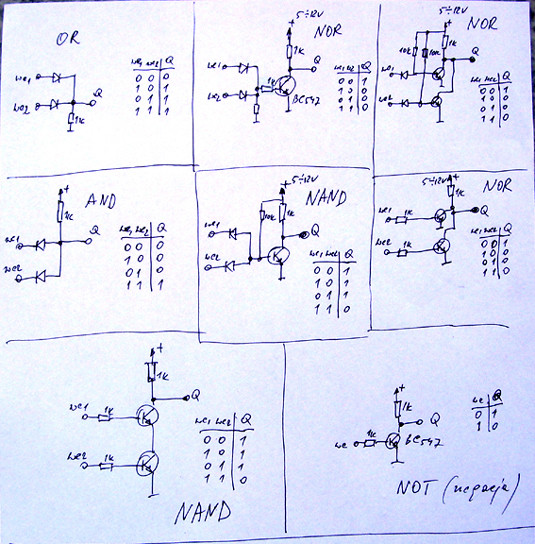 OR
we1
we2
Q
1k
we1 we2 Q
0 0 0
1 0 1
0 1 1
1 1 1
5÷12V
+
NOR
1k
Q
we1
we2
1k
BC547
we1 we2 Q
0 0 1
1 0 0
0 1 0
1 1 0
5÷12V
+
NOR
10k
10k
1k
Q
we1
we2
we1 we2 Q
0 0 1
1 0 0
0 1 0
1 1 0
+
AND
1k
Q
we1
we2
we1 we2 Q
0 0 0
1 0 0
0 1 0
1 1 1
5÷12V
+
NAND
10k
1k
Q
we1
we2
we1 we2 Q
0 0 1
1 0 1
0 1 1
1 1 0
5÷12V
+
NOR
1k
Q
we1
1k
we2
1k
we1 we2 Q
0 0 1
1 0 0
0 1 0
1 1 0
+
1k
Q
we1
1k
we2
1k
we1 we2 Q
0 0 1
1 0 1
0 1 1
1 1 0
NAND
+
1k
Q
we
1k
BC547
we Q
0 1
1 0
NOT (negacja)